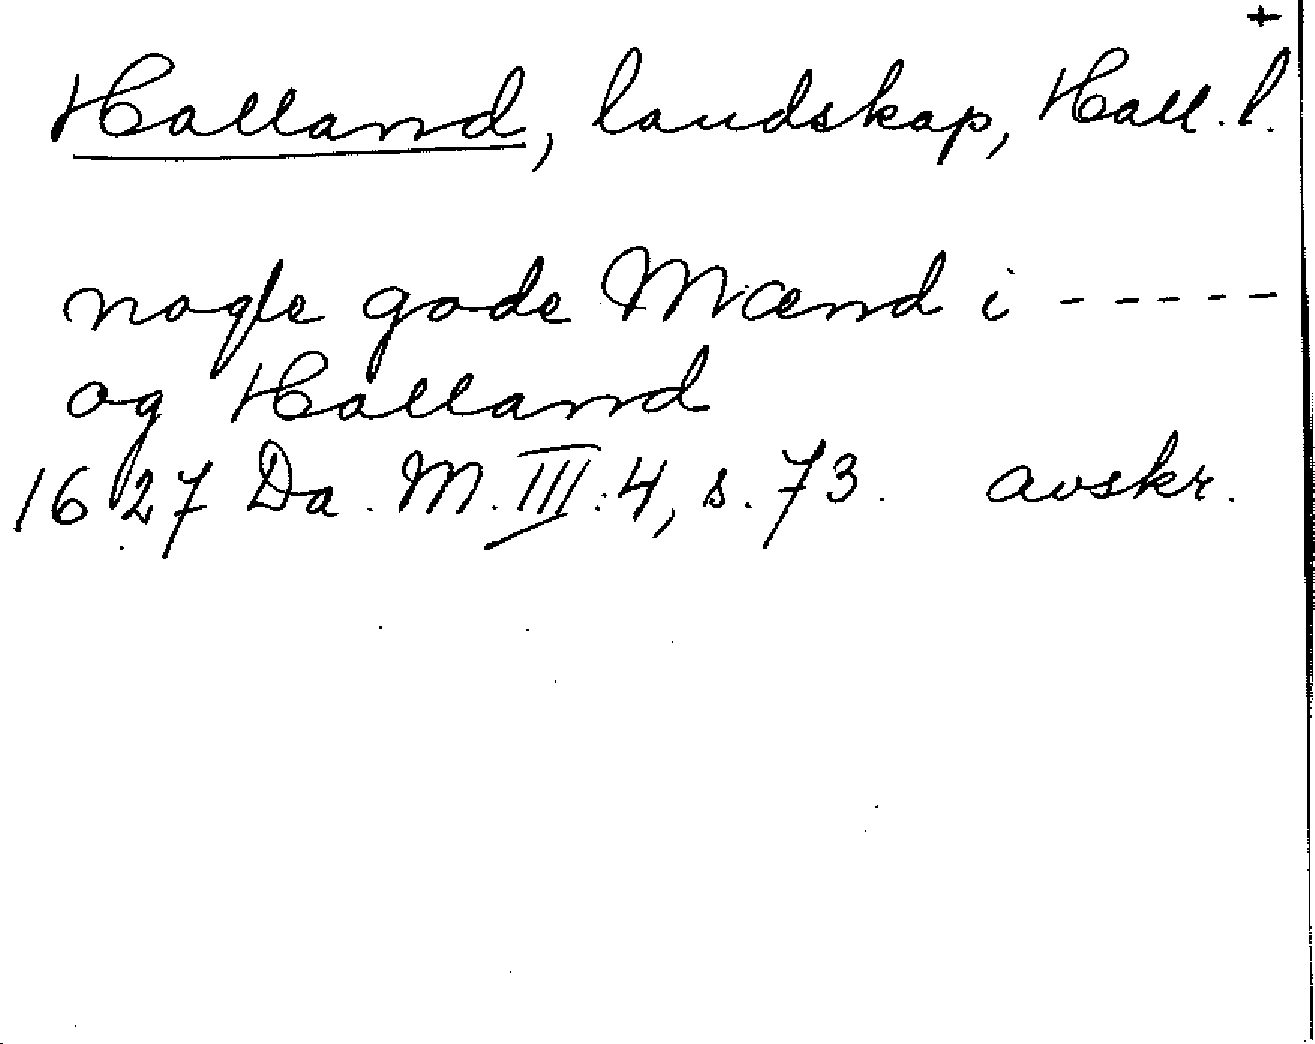 +
Halland, landskap, Hall. l.
nogle gode Mænd i - - - - -
og Halland
1627 Da. M. III:4, s. 73. avskr.